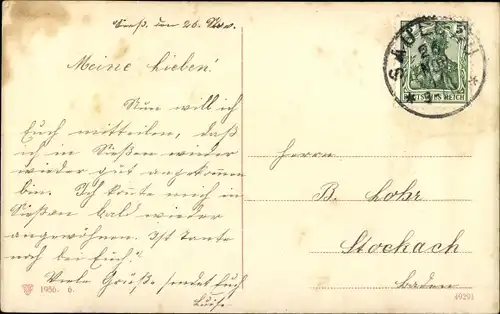 den 26. Nov.
Meine Lieben!
Nun will ich
Euch mitteilen, daß
ich in Sießen wieder
wieder gut angekommen
bin. Ich konnte mich in
Sießen bald wieder
angewöhnen. Ist Tante
noch bei Euch?
Viele Grüße sendet Euch
Luise
1956. 6.
SAULGAU
DEUTSCHES REICH
Herrn
B. Lohr
Stockach
Baden
49291